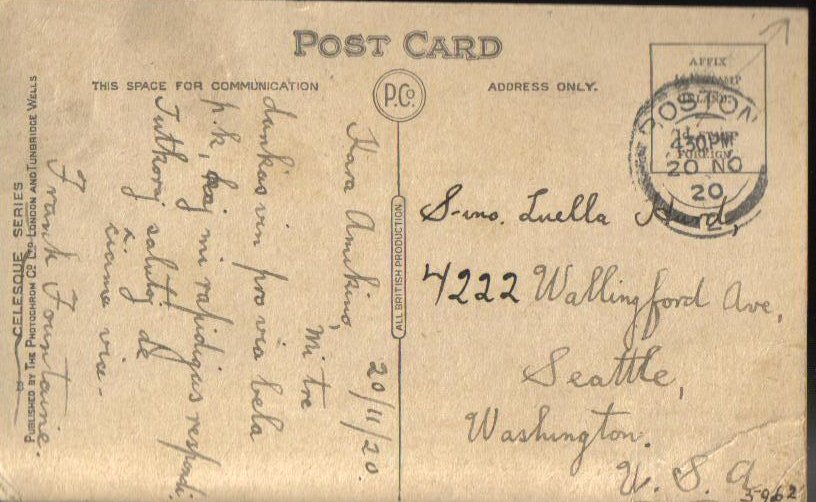 POST CARD
THIS SPACE FOR COMMUNICATION
P.Co.
ADDRESS ONLY.
AFFIX
STAMP
INLAND
FOREIGN
BOSTON
4.30PM
20 NO
20
20/11/20.
Kara Amikino,
Mi tre
dankas vin pro via bela
p.k, kaj mi rapidigas respondi
Tutkoraj salutoj de
ciama via-
Frank Fountaine.
S-ino. Luella Hurd,
4222 Wallingford Ave,
Seattle,
Washington.
U. S. A
5962
ALL BRITISH PRODUCTION
CELESQUE SERIES
PUBLISHED BY THE PHOTOCHROM CO. LTD. LONDON AND TUNBRIDGE WELLS